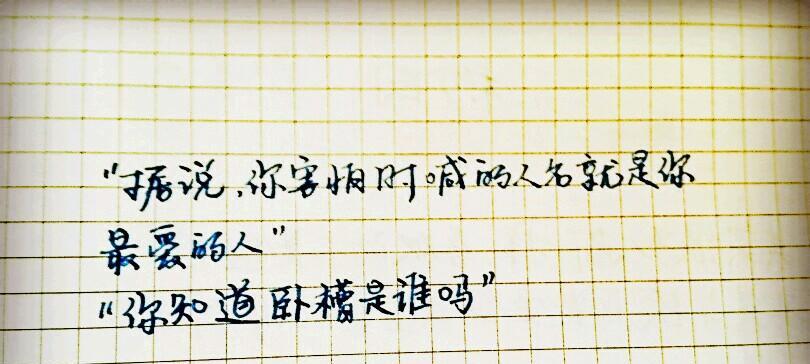 “据说，你害怕时喊的人名就是你
最爱的人”
“你知道卧槽是谁吗”